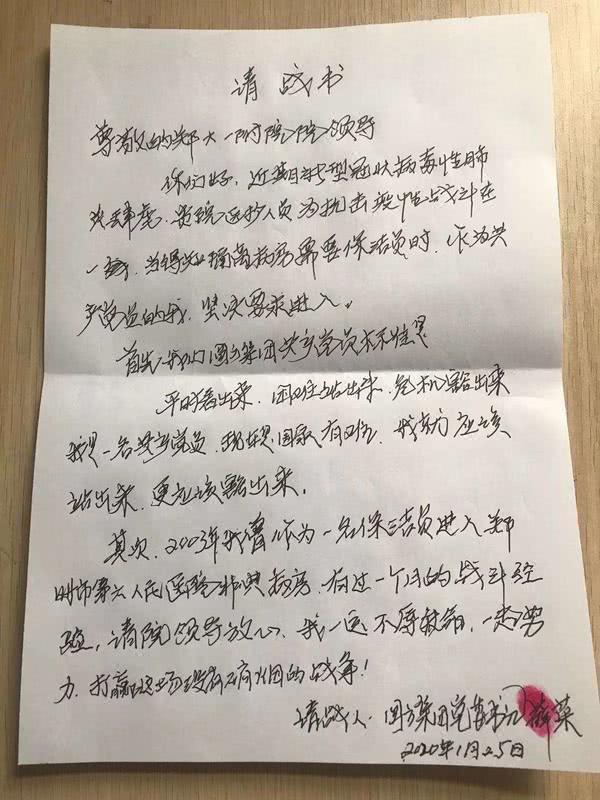 请战书
尊敬的郑大一附院院领导
你们好，近期新型冠状病毒性肺
炎肆虐、贵院医护人员为抗击疫情战斗在
一线，当得知隔离病房需要保洁员时，作为共
产党员的我，坚决要求进入。
首先，我们圆方集团共产党员标准是
平时看出来、困难站出来、危机豁出来
我是一名共产党员，现在是国家有难，我就应该
站出来，更应该豁出来。
其次，2003年我曾作为一名保洁员进入郑
州市第六人民医院非典病房，有过一个月的战斗经
验，请院领导放心，我一定不辱使命，一起努
力，打赢这场没有硝烟的战争！
请战人：圆方集团党委书记 薛荣
2020年1月25日